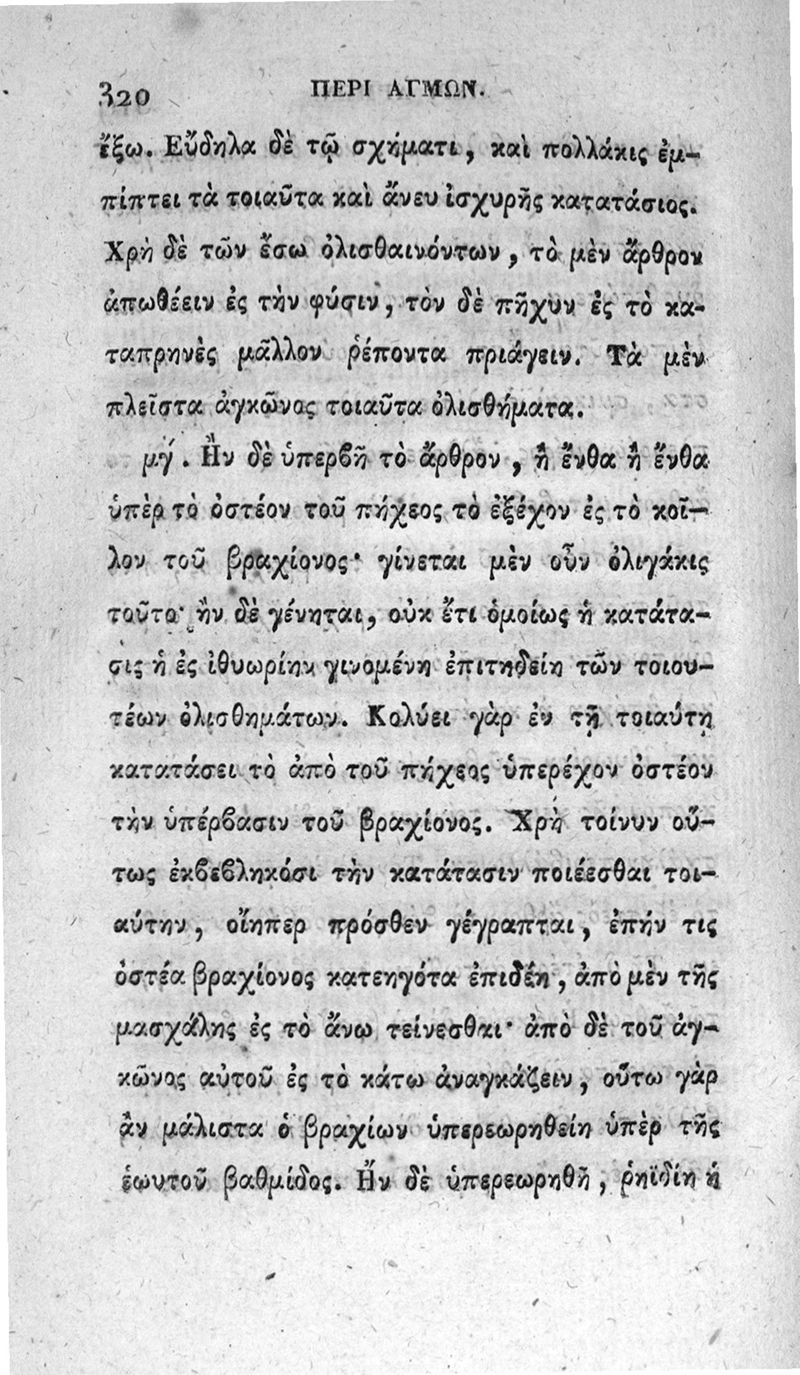 320 ΠΕΡΙ ΑΓΜΩΝ.
ἔξω. Εὔδηλα δὲ τῷ σχήματι, καὶ πολλάκις ἐμ-
πίπτει τὰ τοιαῦτα καὶ ἄνευ ἰσχυρῆς κατατάσιος.
Χρὴ δὲ τῶν ἔσω ὀλισθαινόντων, τὸ μὲν ἄρθρον
ἀπωθέειν ἐς τὴν φύσιν, τὸν δὲ πῆχυν ἐς τὸ κα-
ταπρηνὲς μᾶλλον ῥέποντα πριάγειν. Τὰ μὲν
πλεῖστα ἀγκῶνος τοιαῦτα ὀλισθήματα.
μγ´. Ἢν δὲ ὑπερβῆ τὸ ἄρθρον, ἢ ἔνθα ἢ ἔνθα
ὑπὲρ τὸ ὀστέον τοῦ πήχεος τὸ ἐξέχον ἐς τὸ κοῖ-
λον τοῦ βραχίονος· γίνεται μὲν οὖν ὀλιγάκις
τοῦτο· ἢν δὲ γένηται, οὐκ ἔτι ὁμοίως ἡ κατάτα-
σις ἡ ἐς ἰθυωρίην γινομένη ἐπιτηδείη τῶν τοιου-
τέων ὀλισθημάτων. Κολύει γὰρ ἐν τῇ τοιαύτῃ
κατατάσει τὸ ἀπὸ τοῦ πήχεος ὑπερέχον ὀστέον
τὴν ὑπέρβασιν τοῦ βραχίονος. Χρὴ τοίνυν οὕ-
τως ἐκβεβληκόσι τὴν κατάτασιν ποιέεσθαι τοι-
αύτην, οἵηπερ πρόσθεν γέγραπται, ἐπήν τις
ὀστέα βραχίονος κατεηγότα ἐπιδέῃ, ἀπὸ μὲν τῆς
μασχάλης ἐς τὸ ἄνω τείνεσθαι· ἀπὸ δὲ τοῦ ἀγ-
κῶνος αὐτοῦ ἐς τὸ κάτω ἀναγκάζειν, οὕτω γὰρ
ἂν μάλιστα ὁ βραχίων ὑπερεωρηθείη ὑπὲρ τῆς
ἑωυτοῦ βαθμίδος. Ἢν δὲ ὑπερεωρηθῆ, ῥηϊδίη ἡ